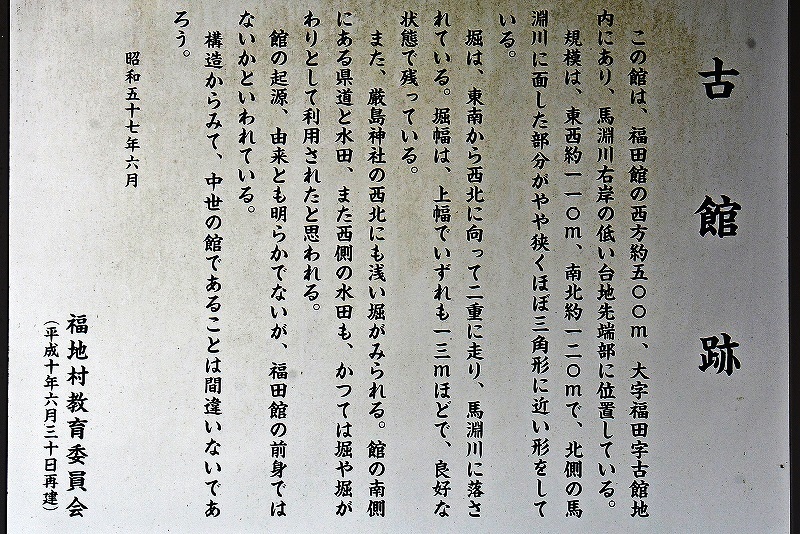 古館跡
この館は、福田館の西方約五〇〇m、大字福田字古館地
内にあり、馬淵川右岸の低い台地先端部に位置している。
規模は、東西約一一〇m、南北約一二〇mで、北側の馬
淵川に面した部分がやや狭くほぼ三角形に近い形をして
いる。
堀は、東南から西北に向って二重に走り、馬淵川に落さ
れている。堀幅は、上幅でいずれも一三mほどで、良好な
状態で残っている。
また、厳島神社の西北にも浅い堀がみられる。館の南側
にある県道と水田、また西側の水田も、かつては堀や堀が
わりとして利用されたと思われる。
館の起源、由来とも明らかでないが、福田館の前身では
ないかといわれている。
構造からみて、中世の館であることは間違いないであ
ろう。
昭和五十七年六月
福地村教育委員会
（平成十年六月三十日再建）